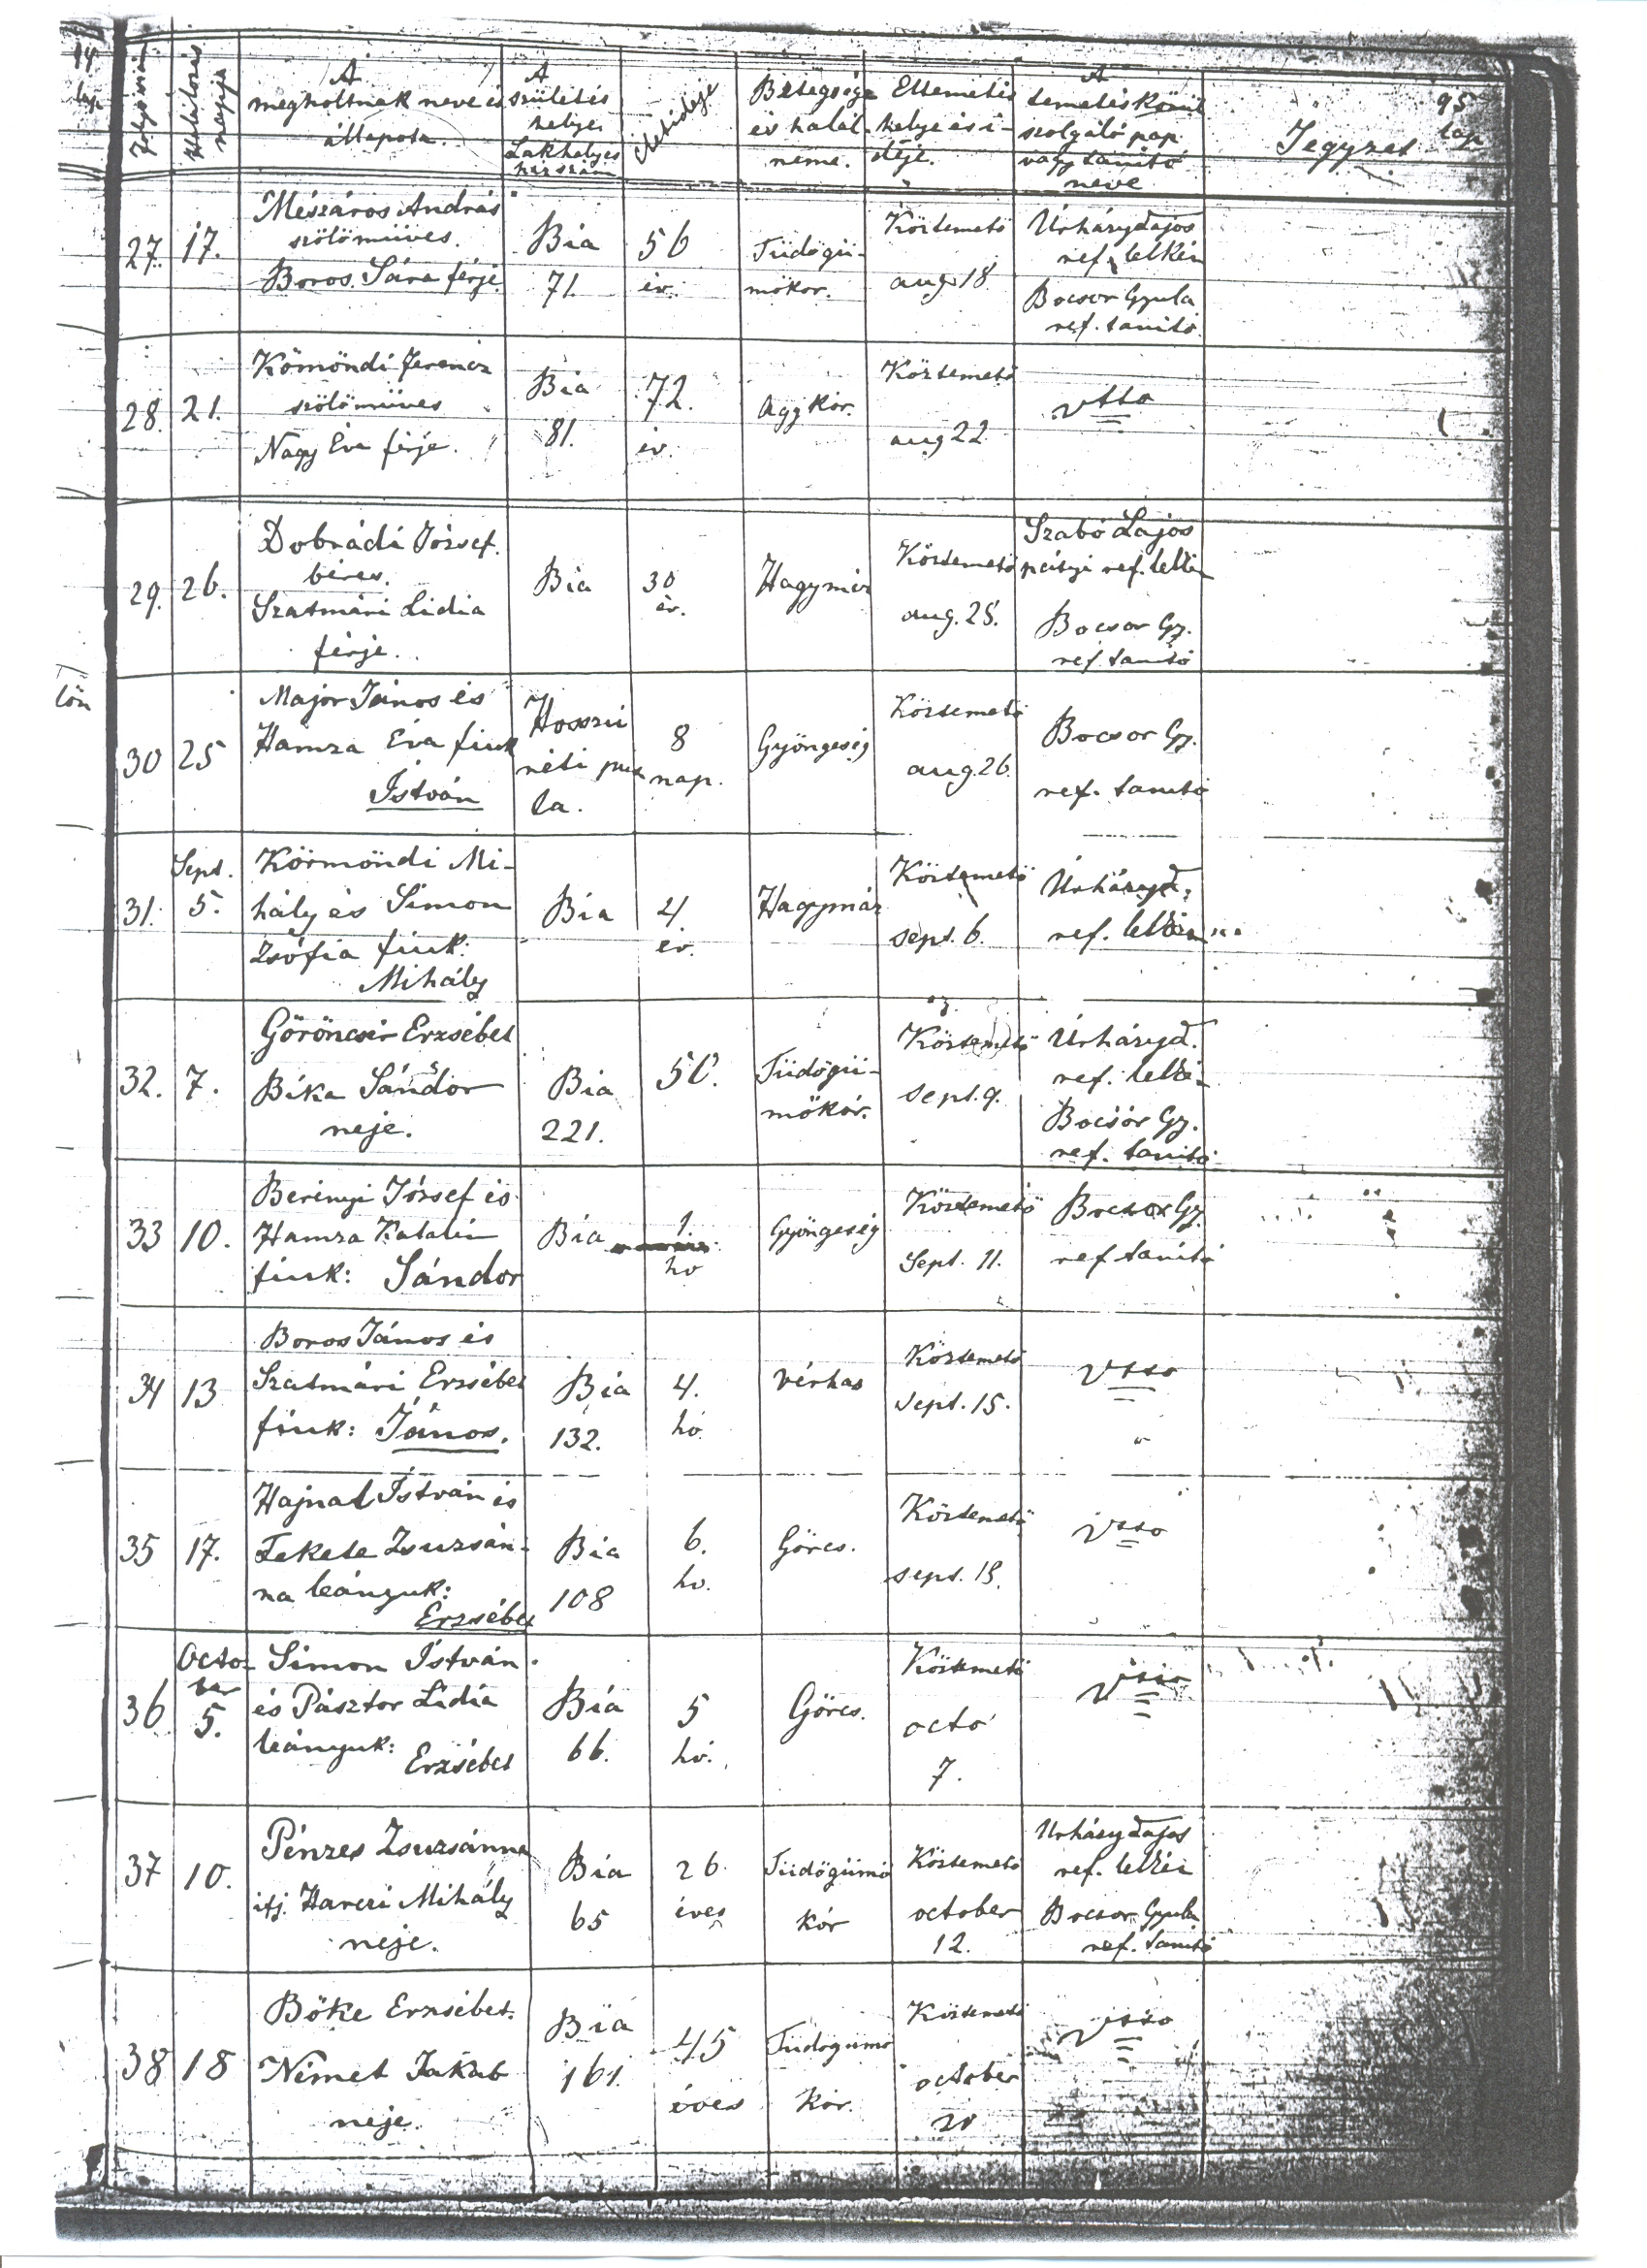 95
lap
Folyó szám
Halálozás napja
A
megholtnak neve és
állapota.
A
születés
helye.
Lakhelye s
házszám
Életideje
Betegsége
és halál
neme.
Eltemetés
helye és i-
deje.
A
temetés körül
szolgáló pap
vagy tanító
neve
Jegyzet
27. 17.
Mészáros András
szölömüves.
Boros Sára férje.
Bia
71.
56
év.
Tüdögü-
mökor.
Köztemetö
aug 18
Úrházy Lajos
ref. lelkész
Bocsor Gyula
ref. tanitó.
28. 21.
Kömöndi Ferencz
szölömüves
Nagy Éva férje.
Bia
81.
72.
év.
Agykór.
Köztemetö
aug 22
vtto
29. 26.
Dobrádi József.
béres.
Szatmári Lidia
férje.
Bia
30
év.
Hagymáz
Köztemetö
aug. 28.
Szabó Lajos
pátyi ref. lelkész
Bocsor Gy.
ref. tanitó
30 25
Major János és
Hamza Éva fiuk
István
Hosszú
réti pusz
ta.
8
nap.
Gyöngeség
Köztemetö
aug. 26.
Bocsor Gy.
ref. tanitó
31. Sept.
5.
Körmöndi Mi-
hály és Simon
Zsófia fiuk:
Mihály
Bia
4.
év.
Hagymáz
Köztemetö
sept. 6.
Úrházy L.
ref. lelkész
32. 7.
Göröncsér Erzsébet
Bika Sándor
neje.
Bia
221.
50.
Tüdögü-
mökór.
Köztemetö
sept. 9.
Úrházy L.
ref. lelkész
Bocsór Gy.
ref. tanitó
33 10.
Berényi József és
Hamza Katalin
fiuk: Sándor
Bia
1.
hó
Gyöngeség
Köztemetö
Sept. 11.
Bocsor Gy
ref tanitó
34 13
Boros János és
Szatmári Erzsébet
fiuk: János.
Bia
132.
4.
hó.
Vérhas
Köztemetö
sept. 15.
vtto
35 17.
Hajnal István és
Fekete Zsuzsán-
na leányuk:
Erzsébet
Bia
108
6.
hó.
Görcs.
Köztemetö
sept.
vtto
36 Octo-
ber
5.
Simon István
és Pásztor Lidia
leányuk:
Erzsébet
Bia
66.
5
hó.
Görcs.
Köztemetö
octo
7.
vtto
37 10.
Pénzes Zsuzsánna
ifj. Harczi Mihály
neje.
Bia
65
26
éves
Tüdögümö
kór
Köztemetö
october
12.
Urházy Lajos
ref. lelkész
Bocsor Gyula
ref. tanitó
38 18
Böke Erzsébet.
Német Jakab
neje.
Bia
161.
45
éves
Tüdogumo
kor.
Köztemetö
october
20
vtto
lön